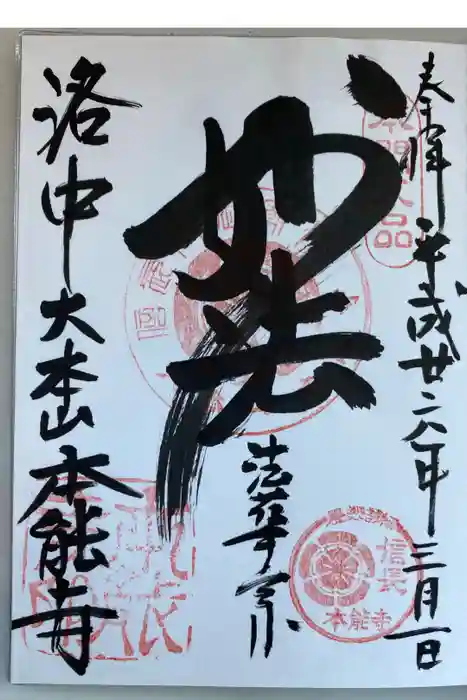 奉拝 平成廿六年三月一日
本門八品
妙法
法華宗
信長
本能寺
洛中 大本山 本能寺